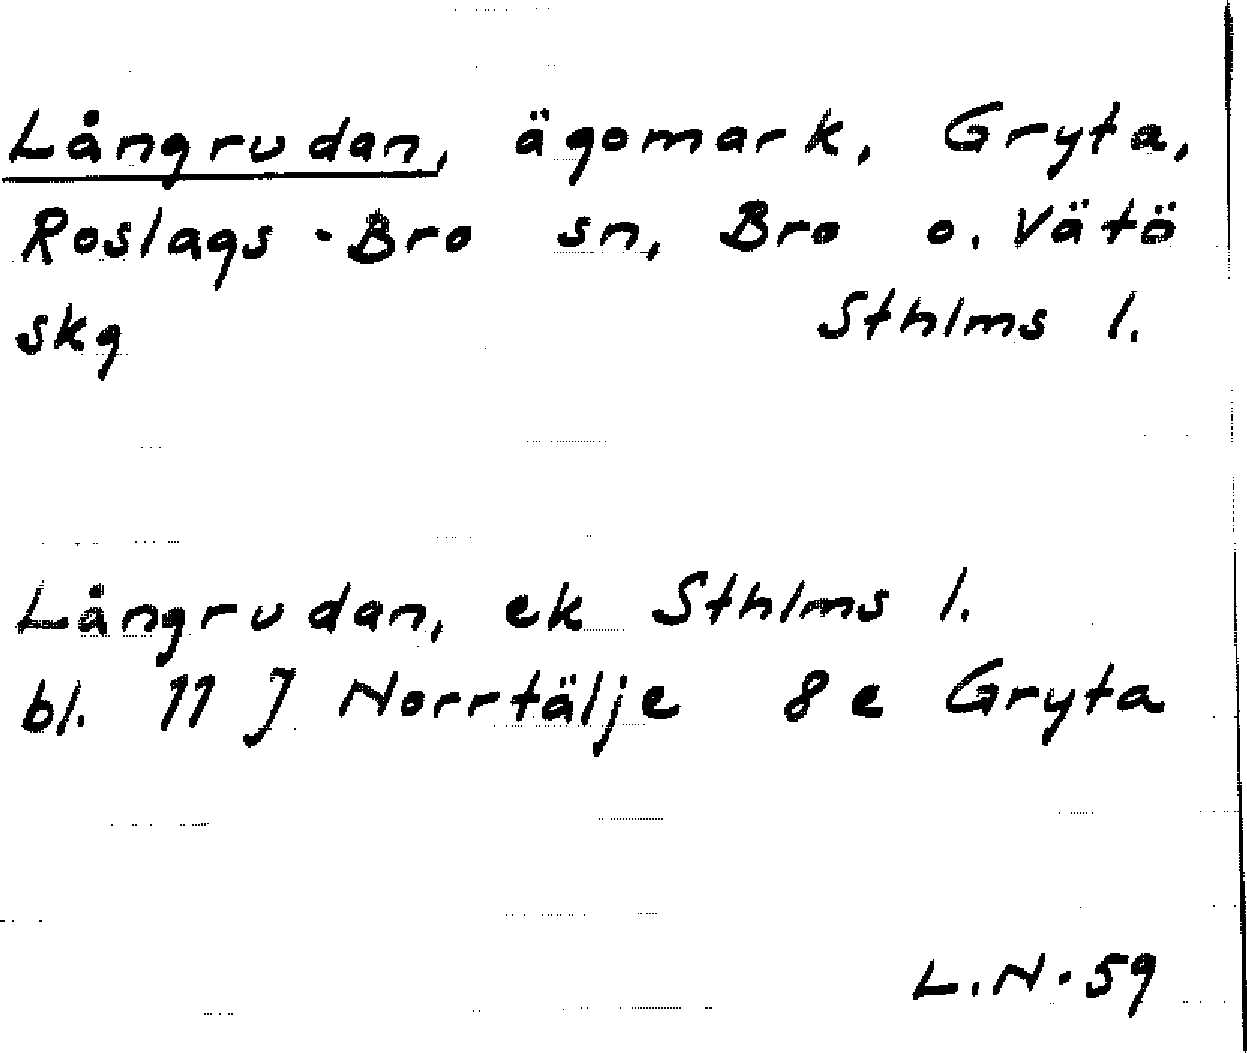 Långrudan, ägomark, Gryta,
Roslags-Bro sn, Bro o. Vätö
skg Sthlms l.
Långrudan, ek Sthlms l.
bl. 11 J Norrtälje 8e Gryta
L.N. 59